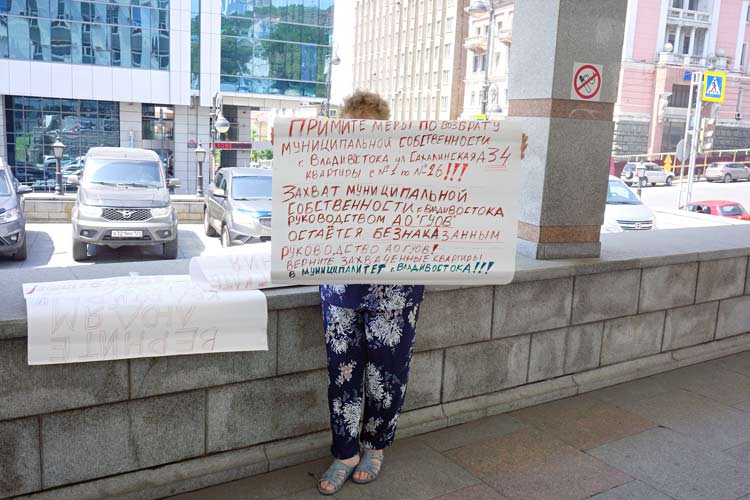 ПРИМИТЕ МЕРЫ ПО ВОЗВРАТУ
МУНИЦИПАЛЬНОЙ СОБСТВЕННОСТИ
г. ВЛАДИВОСТОКА ул САХАЛИНСКАЯ Д 34
КВАРТИРЫ С №1 ПО №16!!!
ЗАХВАТ МУНИЦИПАЛЬНОЙ
СОБСТВЕННОСТИ г. ВЛАДИВОСТОКА
РУКОВОДСТВОМ АО ГУОВ
ОСТАЁТСЯ БЕЗНАКАЗАННЫМ
РУКОВОДСТВО АО ГУОВ!
ВЕРНИТЕ ЗАХВАЧЕННЫЕ КВАРТИРЫ
В МУНИЦИПАЛИТЕТ г. ВЛАДИВОСТОКА!!!
ВЕРНИТЕ
ЛЮДЯМ